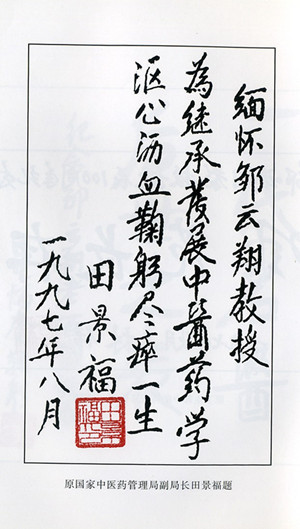 缅怀邹云翔教授
为继承发展中醫药学
沤心沥血鞠躬尽瘁一生
田景福
一九九七年八月
原国家中医药管理局副局长田景福题